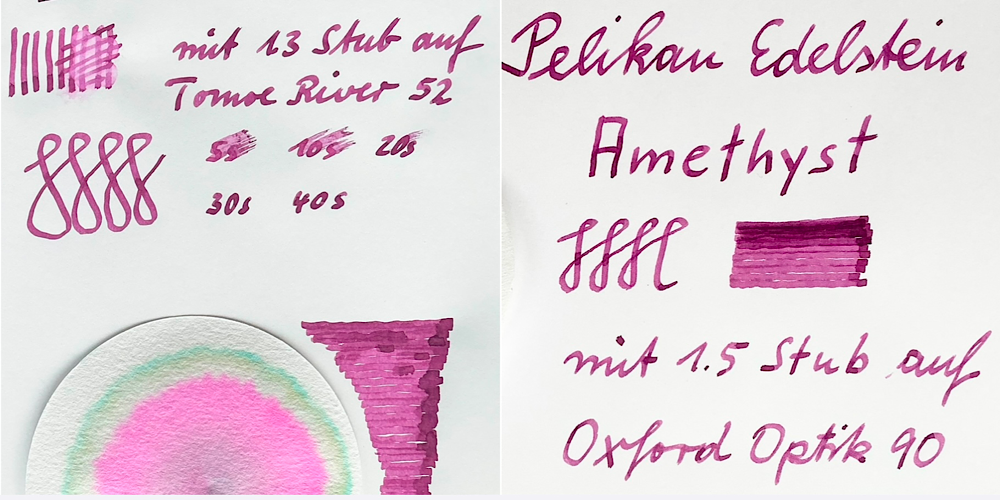 mit 13 Stub auf
Tomoe River 52
5s 10s 20s
30s 40s
Pelikan Edelstein
Amethyst
mit 1.5 Stub auf
Oxford Optik 90